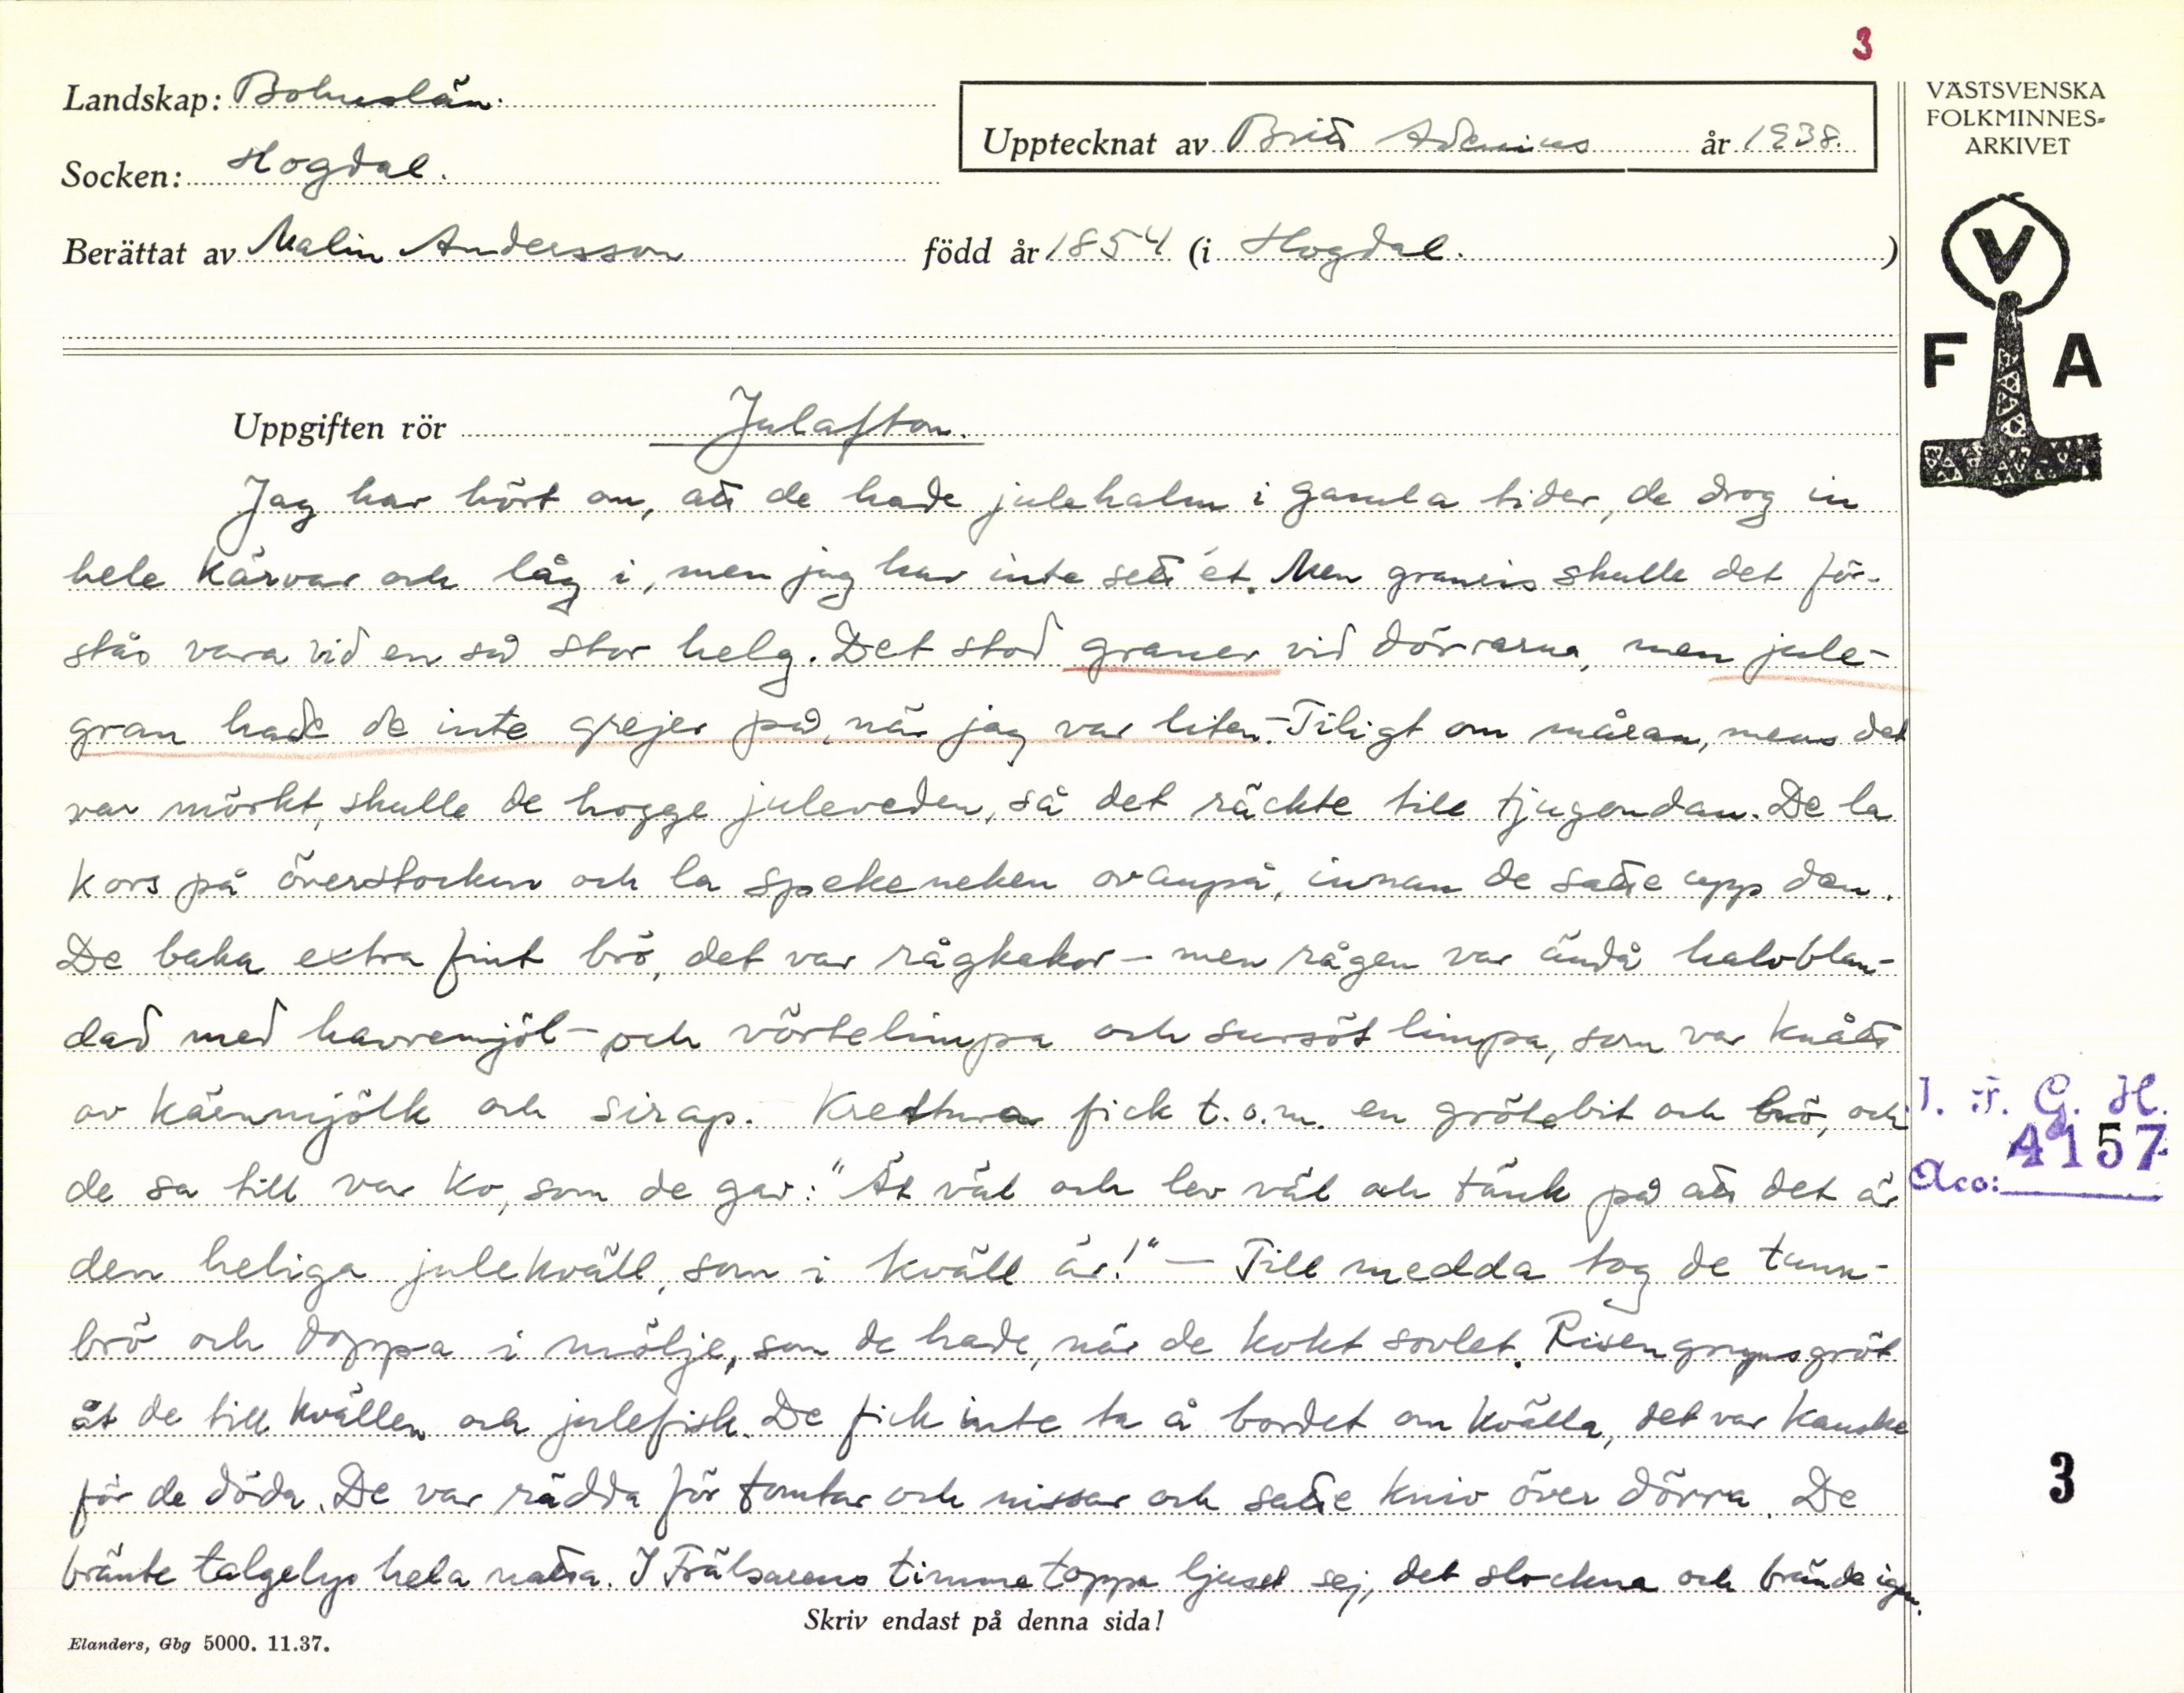 3
Landskap: Bohuslän.
Upptecknat av Britt Adenius år 1938.
Socken: Hogdal.
Berättat av Malin Andersson född år 1854 (i Hogdal. )
VÄSTSVENSKA
FOLKMINNES-
ARKIVET
V
F A
Uppgiften rör Julafton.
Jag har hört om, att de hade julehalm i gamla tider, de drog in
hele kärvar och låg i, men jag har inte sett ét. Men granris skulle det för-
stås vara vid en så stor helg. Det stod graner vid dörrarna, men jule-
gran hade de inte grejer på, när jag var liten. - Tiligt om måran, mens det
var mörkt, skulle de hogge juleveden, så det räckte till tjugondan. De la
kors på överstocken och la spekeneken ovanpå, innan de satte upp den.
De baka extra fint brö, det var rågkakor - men rågen var ändå halvblan-
dad med havremjöl - och vörtelimpa och sursöt limpa, som var knått
av kärnmjölk och sirap. - Krettura fick t.o.m. en grötebit och brö, och
de sa till var ko, som de gav: "Ät väl och lev väl och tänk på att det är
den heliga julekväll, som i kväll är!" - Till medda tog de tunn-
brö och doppa i mölje, som de hade, när de kokt sovlet. Risengrynsgröt
åt de till kvällen och julefisk. De fick inte ta å bordet om kvälla, det var kanske
för de döda. De var rädda för tomtar och nissar och satte kniv över dörra. De
brännte talgelys hela natta. I Frälsarens timme toppa ljuset sej, det slockna och brände igen.
I. F. G. H.
Acc: 4157
3
Skriv endast på denna sida!
Elanders, Gbg 5000. 11.37.